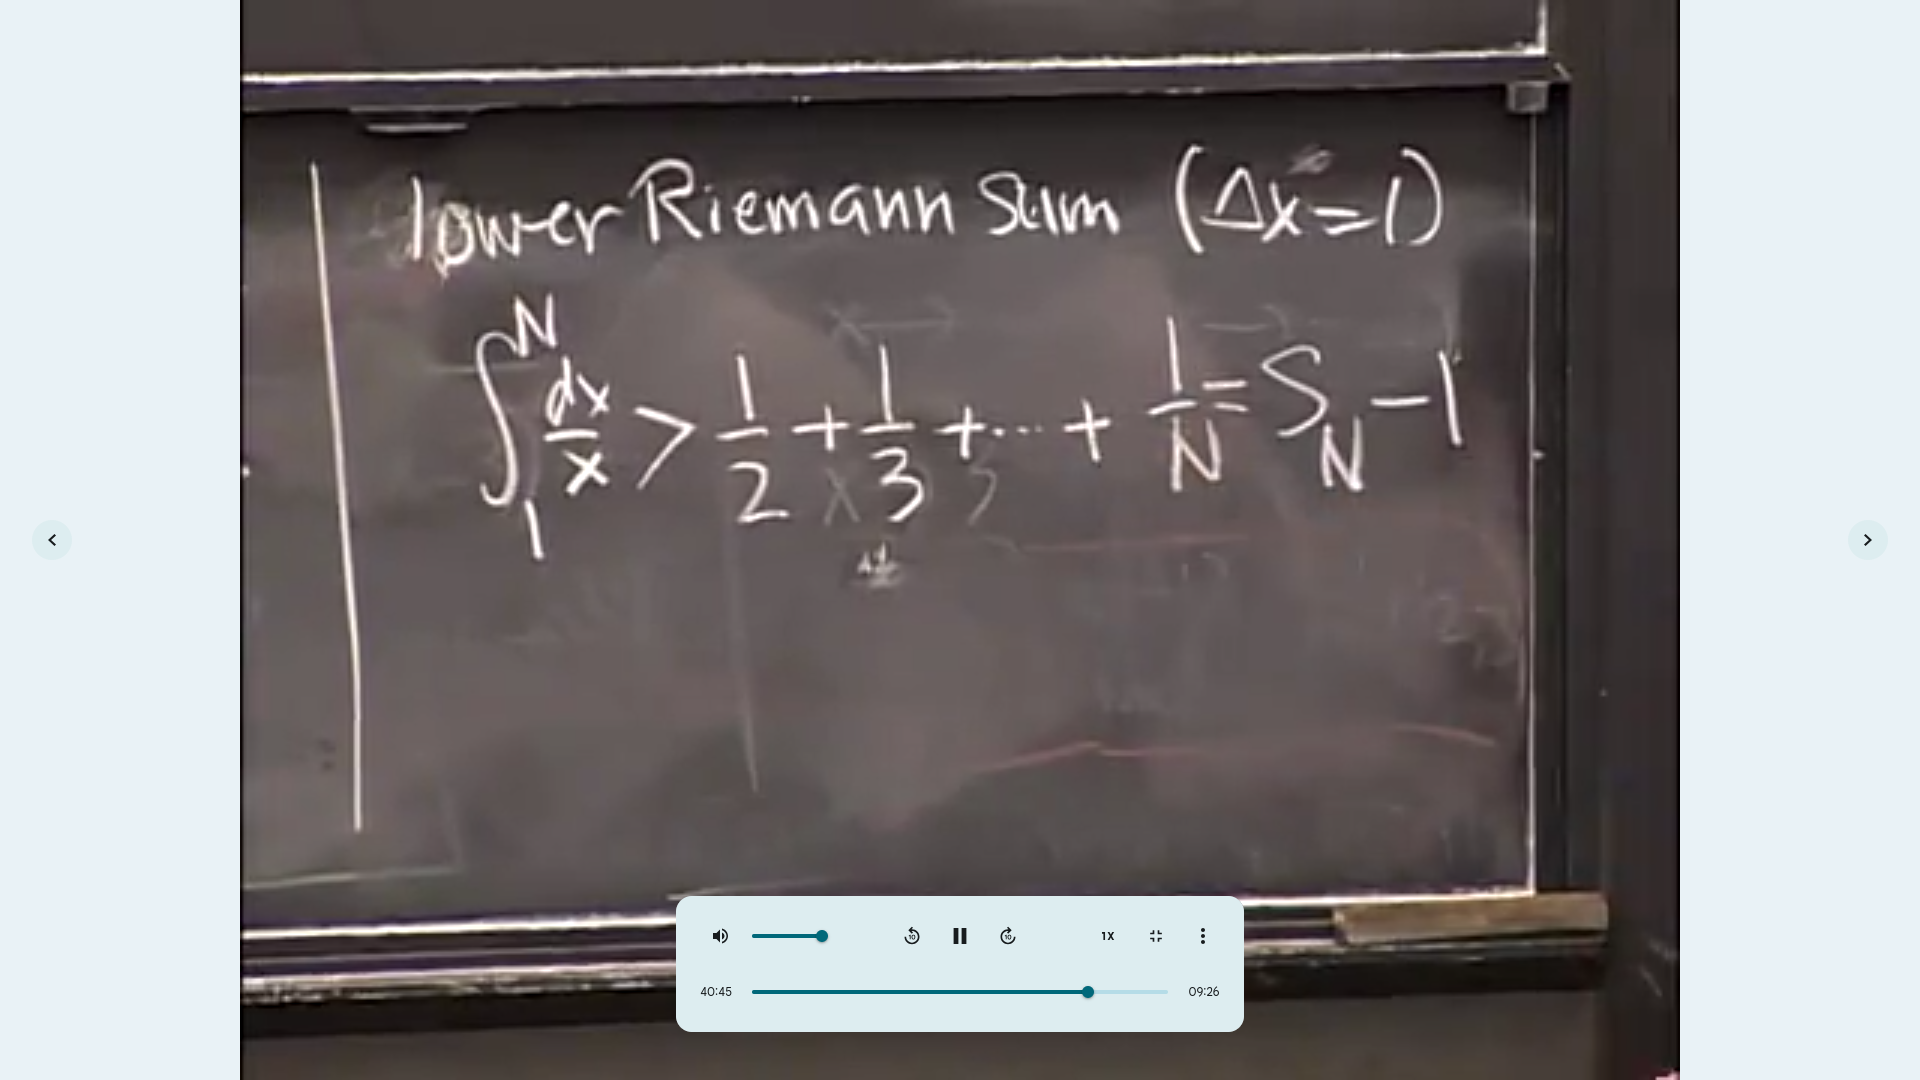 lower Riemann Sum (Δx=1)
∫₁ᴺ dx/x > 1/2 + 1/3 + ... + 1/N = S_N - 1
1X
40:45 09:26